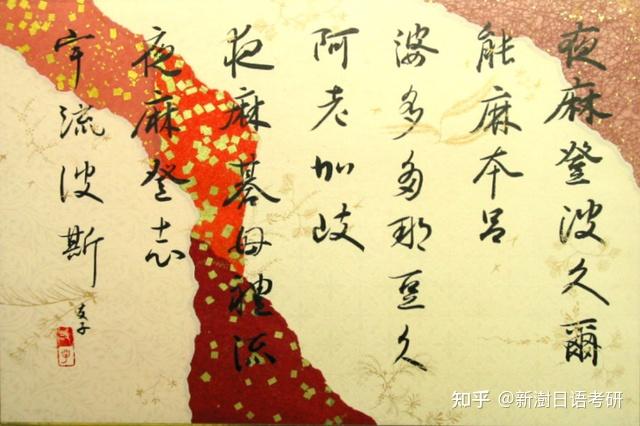 夜麻登波久爾
能麻本呂
婆多多那豆久
阿袁加岐
夜麻碁母禮流
夜麻登志
宇流波斯
友子
知乎 @新澍日语考研